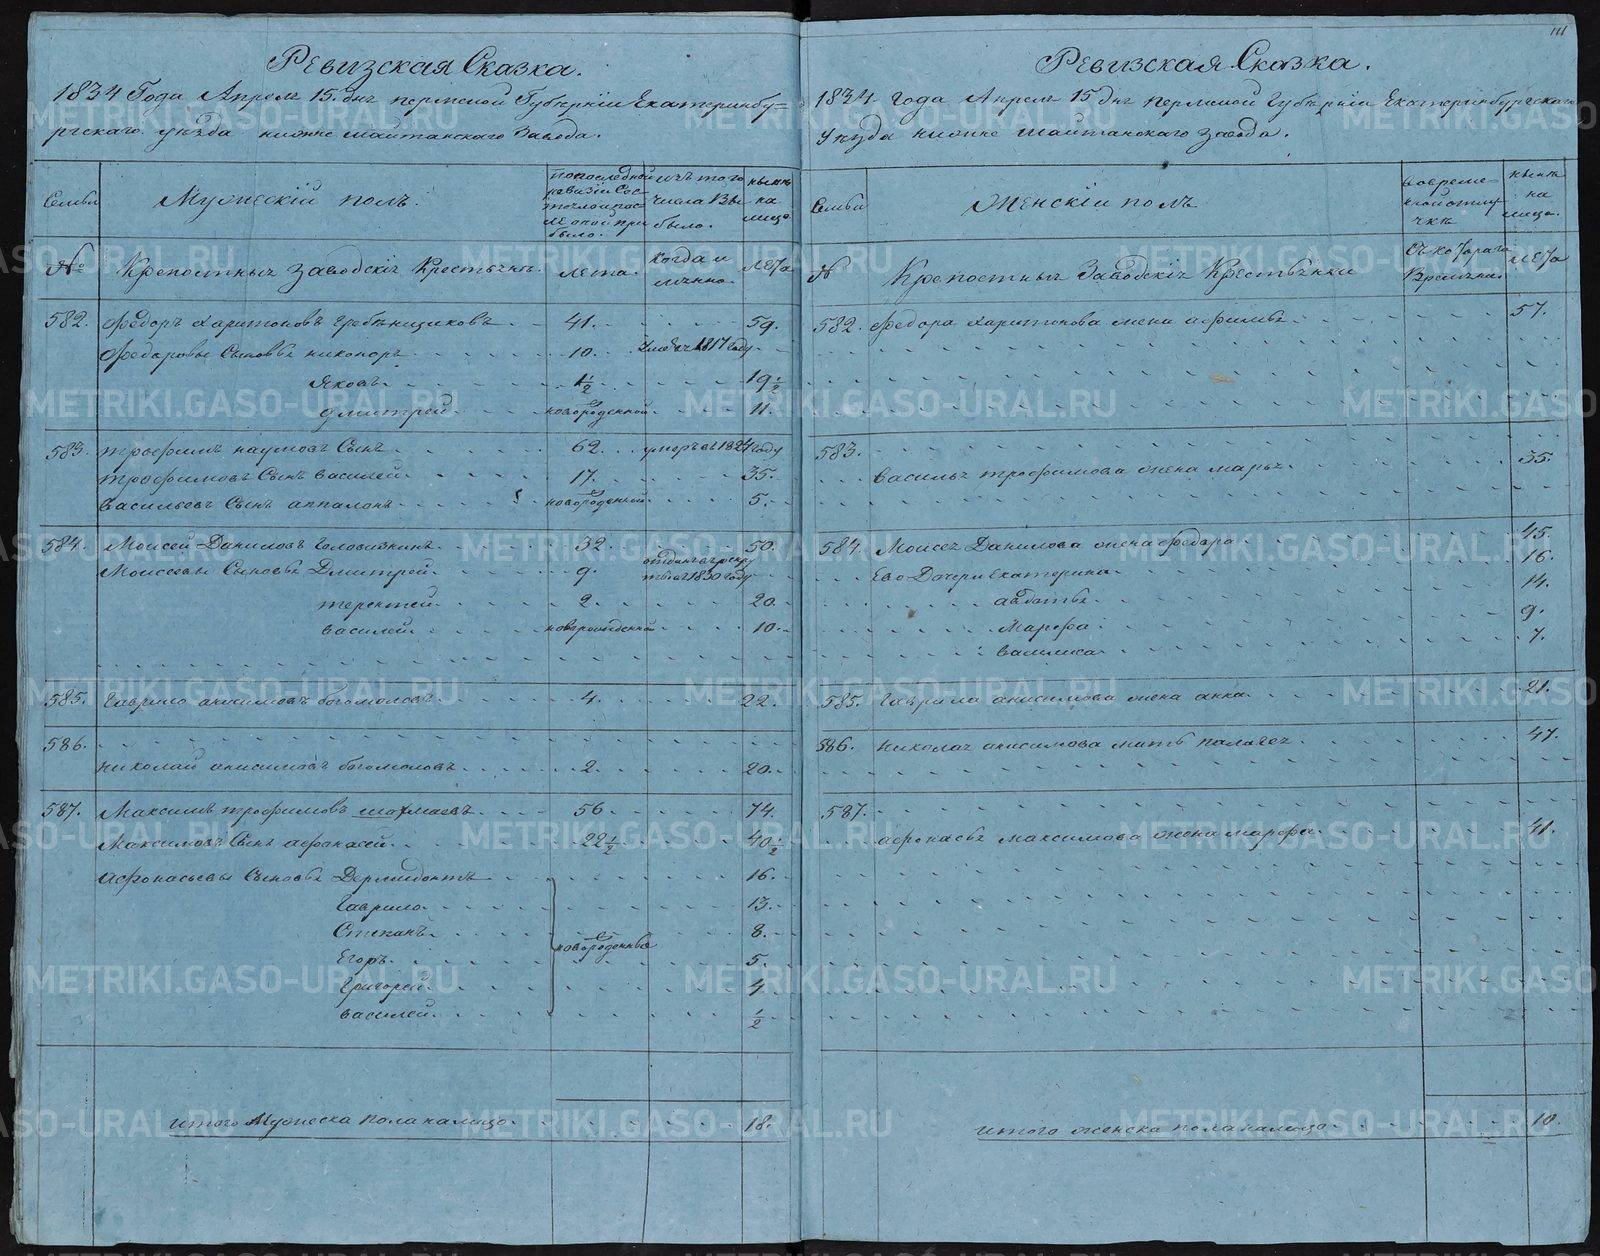 Ревизская Сказка.
1834 Года Апреля 15. дня пермской Губерніи Екатеринбу=
ргскаго уезда нижне шайтанскаго Завода.
Семьи
Мужескій полъ.
по последней
ревизіи Сос
тояло и пос
ле оной при
было.
изъ того
числа Вы
было.
ныне
на
лицо
№
Крепостныхъ Заводскихъ Крестьянъ.
лета.
когда и
лѣта
582. Федоръ харитоновъ гребенщиковъ 41. 59.
Федоровы Сыновья никоноръ 10. 1817 году
Яковъ 1 1/2 19 1/2
дмитрей новорожденной 11.
583. трофимъ наумовъ Сынъ 62. умеръ в 1824 году
трофимовъ Сынъ василей 17. 35.
васильевъ Сынъ апполонъ новорожденной 5.
584. Моисей Даниловъ Головизнинъ 32. 50.
Моисеевы Сыновья Дмитрей 9. отданъ в рекру
1830 году
терентей 2. 20.
василей новорожденной 10.
585. Гаврило анисимовъ богомоловъ 4. 22.
586.
николай анисимовъ богомоловъ 2. 20.
587. Максимъ трофимовъ шолмаевъ 56 74.
Максимовъ Сынъ афонасей 22 1/2 40 1/2
афонасьевы Сыновья Дермидонтъ 16.
Гаврило 13.
Степанъ 8.
новорожденные
Егоръ 5.
Григорей 4
василей 1/2
итого Мужеска пола налицо 18.
111
Ревизская Сказка.
1834 года Апреля 15 дня пермской Губерніи Екатеринбургскаго
Уезда нижне шайтанскаго завода.
Семьи
Женскій полъ
во време-
нной отлу-
чке
ныне
на
лицо.
№
Крепостныхъ Заводскихъ Крестьянки
Съ котораго
Времени
лѣта
582. федора харитонова жена афимья 57.
583.
василья трофимова жена марья 35.
584. Моисея Данилова жена федора 45.
Ево Дочери Екатерина 16.
авдотья 14.
Марфа 9.
василиса 7.
585. Гаврила анисимова жена анна 21.
586. николая анисимова мать палагея 47.
587.
афонасья максимова жена марфа 41.
итого женска пола налицо 10.
METRIKI.GASO-URAL.RU